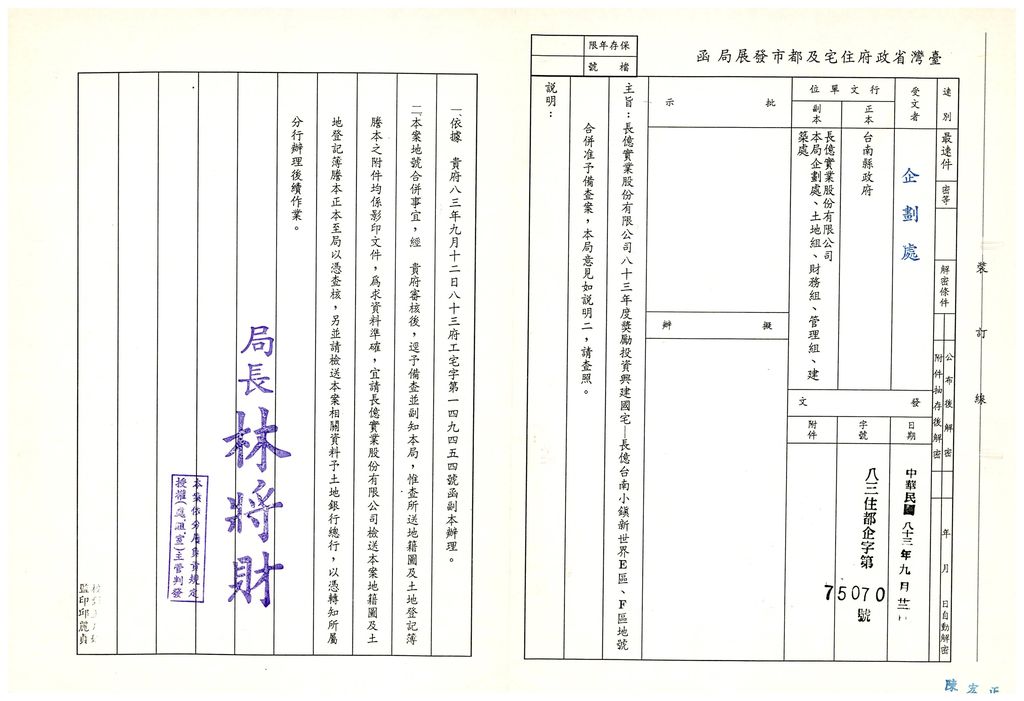 臺灣省政府住宅及都市發展局函
保存年限
檔號
速別
最速件
密等
解密條件
公布後解密
附件抽存後解密
年月日自動解密
受文者
企劃處
行文單位
正本
台南縣政府
副本
長億實業股份有限公司
本局企劃處、土地組、財務組、管理組、建
築處
發文
日期
中華民國八十三年九月
字號
八三住都企字第
75070
號
附件
批示
擬辦
主旨：長億實業股份有限公司八十三年度獎勵投資興建國宅—長億台南小鎮新世界E區、F區地號
合併准予備查案，本局意見如說明二，請查照。
說明：
裝訂線
陳宏正
一、依據　貴府八三年九月十二日八十三府工宅字第一四九四五四號函副本辦理。
二、本案地號合併事宜，經　貴府審核後，逕予備查並副知本局，惟查所送地籍圖及土地登記簿
謄本之附件均係影印文件，為求資料準確，宜請長億實業股份有限公司檢送本案地籍圖及土
地登記簿謄本正本至局以憑查核，另並請檢送本案相關資料予土地銀行總行，以憑轉知所屬
分行辦理後續作業。
局長林將財
本案依分層負責規定
授權(處室)主管判發
監印邱麗貞